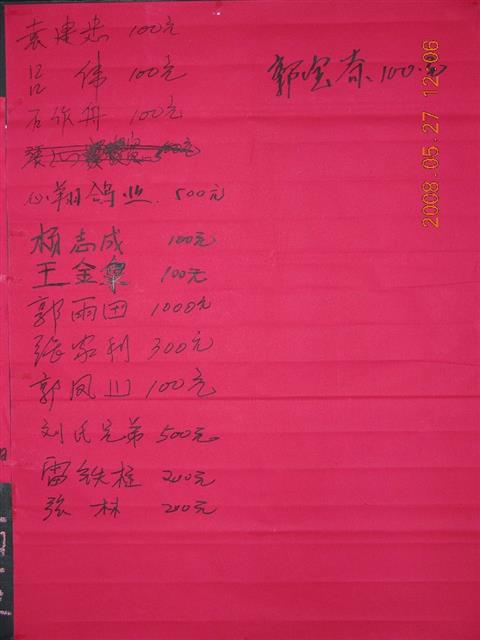 袁建忠 100元
吕 伟 100元
石作舟 100元
心翔鸽业 500元
杨志成 100元
王金 100元
郭雨田 1000元
张家利 300元
郭凤川 100元
刘氏兄弟 500元
雷铁柱 200元
张 林 200元
郭宝奇 100元
2008.05.27 12:06